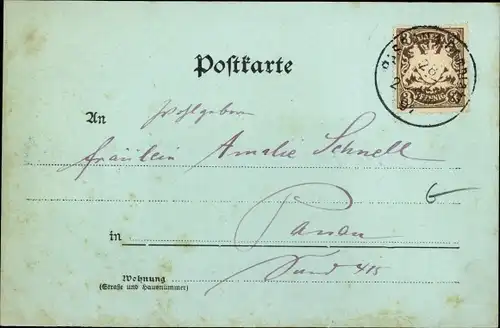 Postkarte
An Wohlgeboren
Fräulein Amalie Schnell
in Passau
Sand 415
Wohnung
(Straße und Hausnummer)